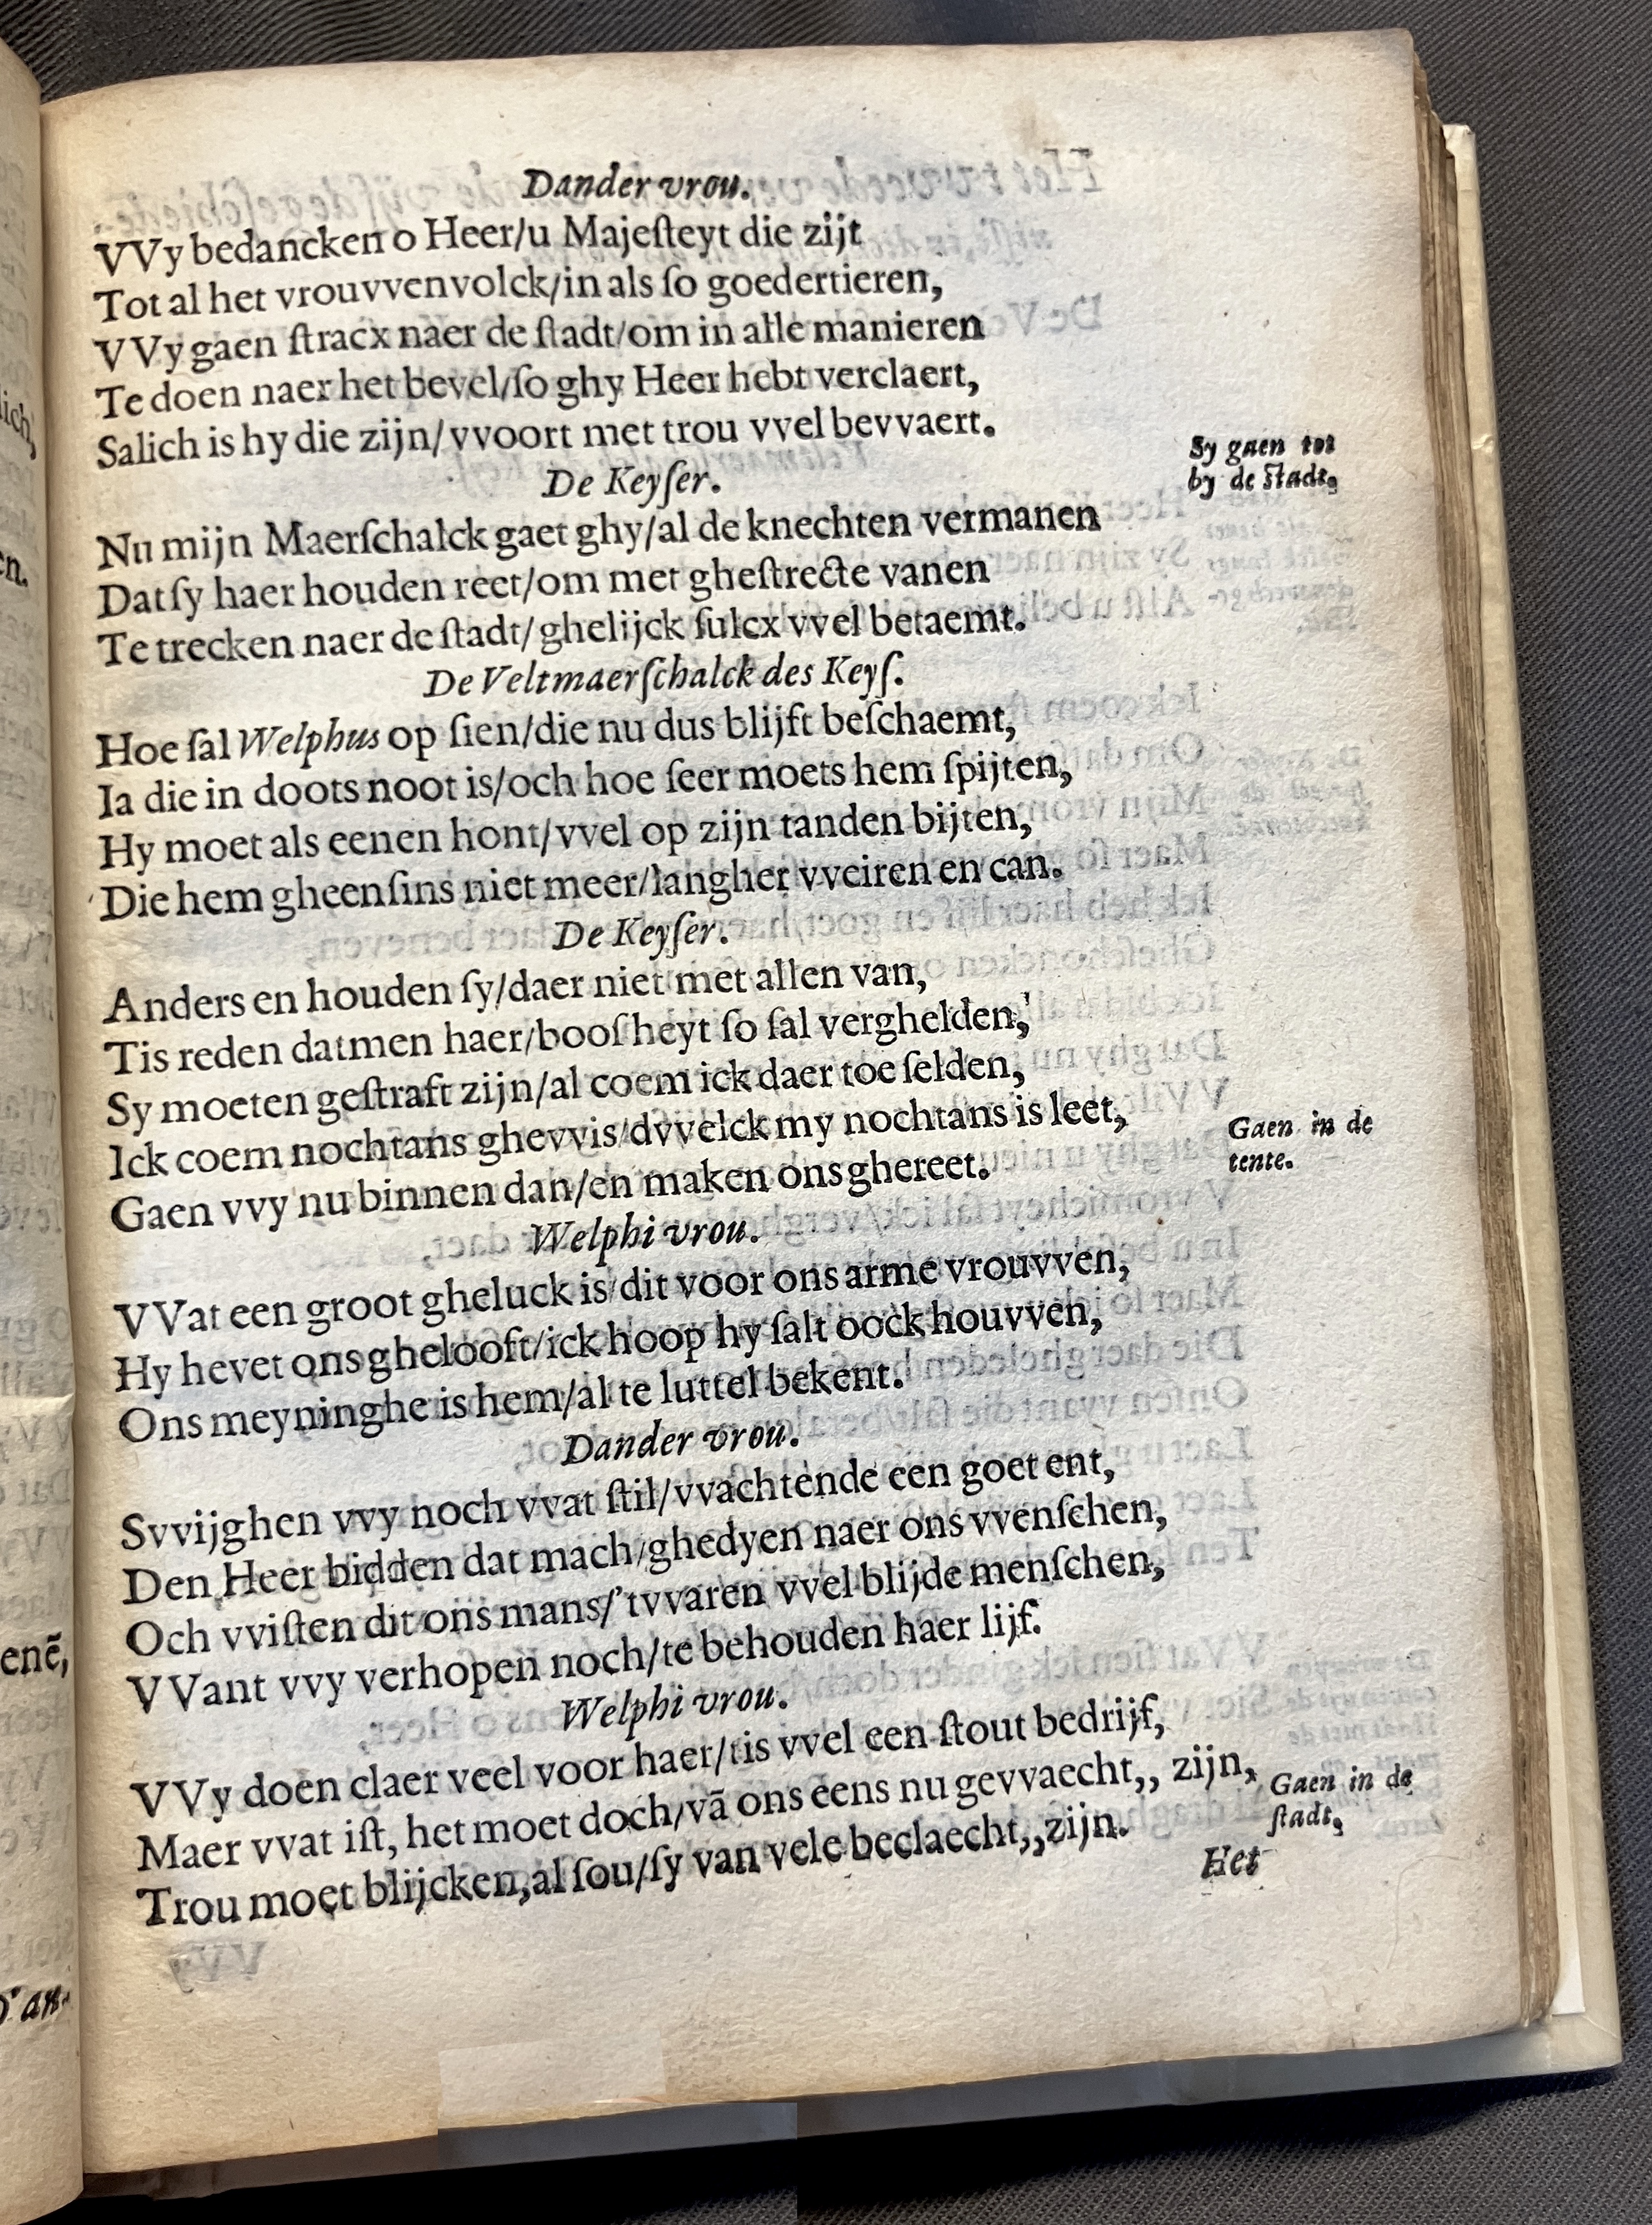 Dander vrou.
VVy bedancken o Heer/u Majeſteyt die zijt
Tot al het vrouvvenvolck/in als ſo goedertieren,
VVy gaen ſtracx naer de ſtadt/om in alle manieren
Te doen naer het bevel/ſo ghy Heer hebt verclaert,
Salich is hy die zijn/vvoort met trou vvel bevvaert.
Sy gaen tot
by de stadt,
De Keyſer.
Nu mijn Maerſchalck gaet ghy/al de knechten vermanen
Datſy haer houden reet/om met gheſtrecte vanen
Te trecken naer de ſtadt/ghelijck ſulcx vvel betaemt.
De Veltmaerſchalck des Keyſ.
Hoe ſal Welphus op ſien/die nu dus blijft beſchaemt,
Ia die in doots noot is/och hoe ſeer moets hem ſpijten,
Hy moet als eenen hont/vvel op zijn tanden bijten,
Die hem gheenſins niet meer/langher vveiren en can.
De Keyſer.
Anders en houden ſy/daer niet met allen van,
Tis reden datmen haer/booſheyt ſo ſal verghelden,
Sy moeten geſtraft zijn/al coem ick daer toe ſelden,
Ick coem nochtans ghevvis/dvvelck my nochtans is leet,
Gaen vvy nu binnen dan/en maken ons ghereet.
Gaen in de
tente.
Welphi vrou.
VVat een groot gheluck is/dit voor ons arme vrouvven,
Hy hevet ons ghelooft/ick hoop hy ſalt oock houvven,
Ons meyninghe is hem/al te luttel bekent.
Dander vrou.
Svvijghen vvy noch vvat ſtil/vvachtende een goet ent,
Den Heer bidden dat mach/ghedyen naer ons vvenſchen,
Och vviſten dit ons mans/'tvvaren vvel blijde menſchen,
VVant vvy verhopen noch/te behouden haer lijf.
Welphi vrou.
VVy doen claer veel voor haer/tis vvel een ſtout bedrijf,
Maer vvat iſt, het moet doch/vā ons eens nu gevvaecht,, zijn,
Trou moet blijcken,al ſou/ſy van vele beclaecht,,zijn.
Gaen in de
ſtadt,
Het